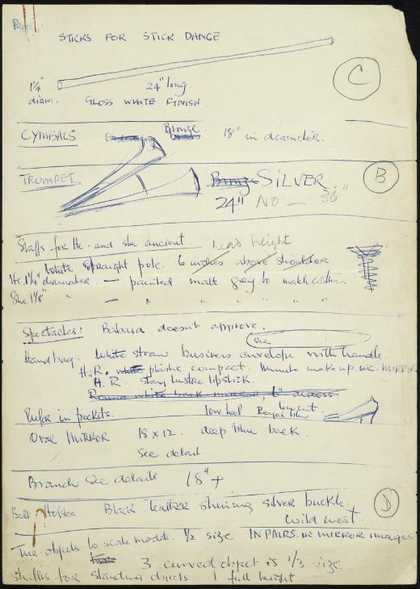 STICKS FOR STICK DANCE
C
1¼" 24" long
diam. GLOSS WHITE FINISH
CYMBALS Bronze 18" in diameter.
B
TRUMPET Bronze SILVER
24" NO — 36"
Staffs for He- and She ancient head height
White straight pole. 6 inches above shoulder
He 1¼" diameter — painted matt grey to match
She 1⅛" " — " " " "
Spectacles: Barbara doesn't approve.
Handbag. White straw business envelope with handle
H.R. white compact. make up inc. MIRROR
H.R. lustre lipstick.
in pockets. low heel
One Mirror 18 x 12. deep blue back
See detail
Branch see details 18" +
D
Belt Black leather shining silver buckle
wild west
Two objects to scale model. ½ size IN PAIRS. in MIRROR images
3 curved object is ⅓ size
for standing objects 1 full height